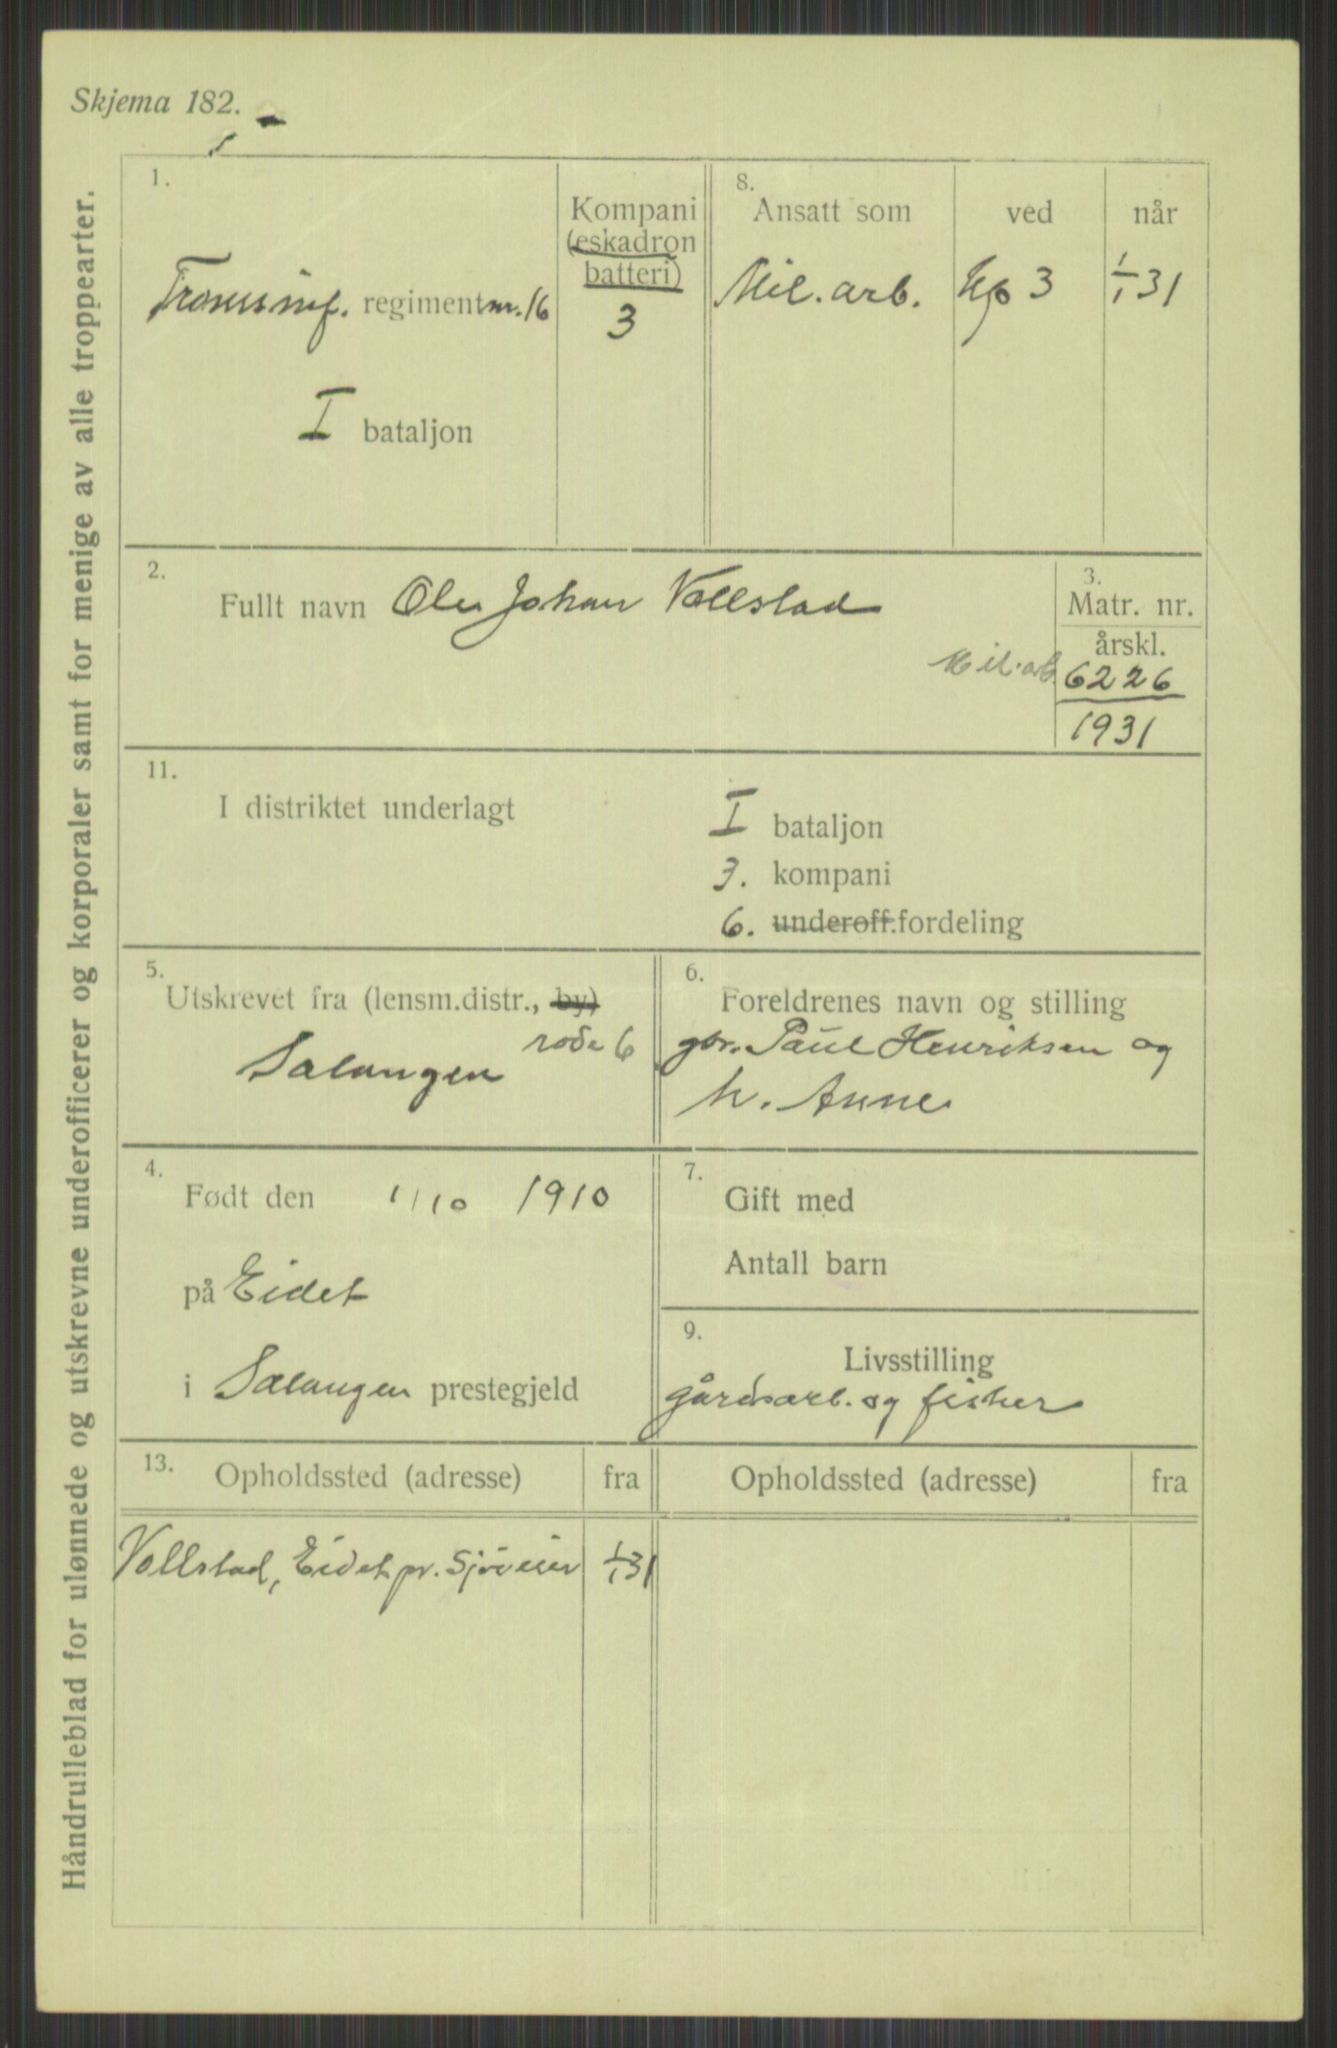 Skjema 182.
Håndrulleblad for ulønnede og utskrevne underofficerer og korporaler samt for menige av alle troppearter.
1.
Troms inf. regiment nr. 16
I bataljon
Kompani
(eskadron
batteri)
3
8.
Ansatt som
ved
når
Mil. arb.
Kp 3
1/1 31
2.
Fullt navn Ole Johan Vollstad
Mil. arb.
3.
Matr. nr.
årskl.
6226
1931
11.
I distriktet underlagt
I bataljon
3. kompani
6. underoff.fordeling
5.
Utskrevet fra (lensm.distr., by)
rode 6
Salangen
6.
Foreldrenes navn og stilling
gbr. Paul Henriksen og
h. Anne
4.
Født den 1/10 1910
på Eidet
i Salangen prestegjeld
7.
Gift med
Antall barn
9.
Livsstilling
gårdsarb. og fisker
13.
Opholdssted (adresse)
fra
Opholdssted (adresse)
fra
Vollstad, Eidet pr. Sjøveien 1/1 31